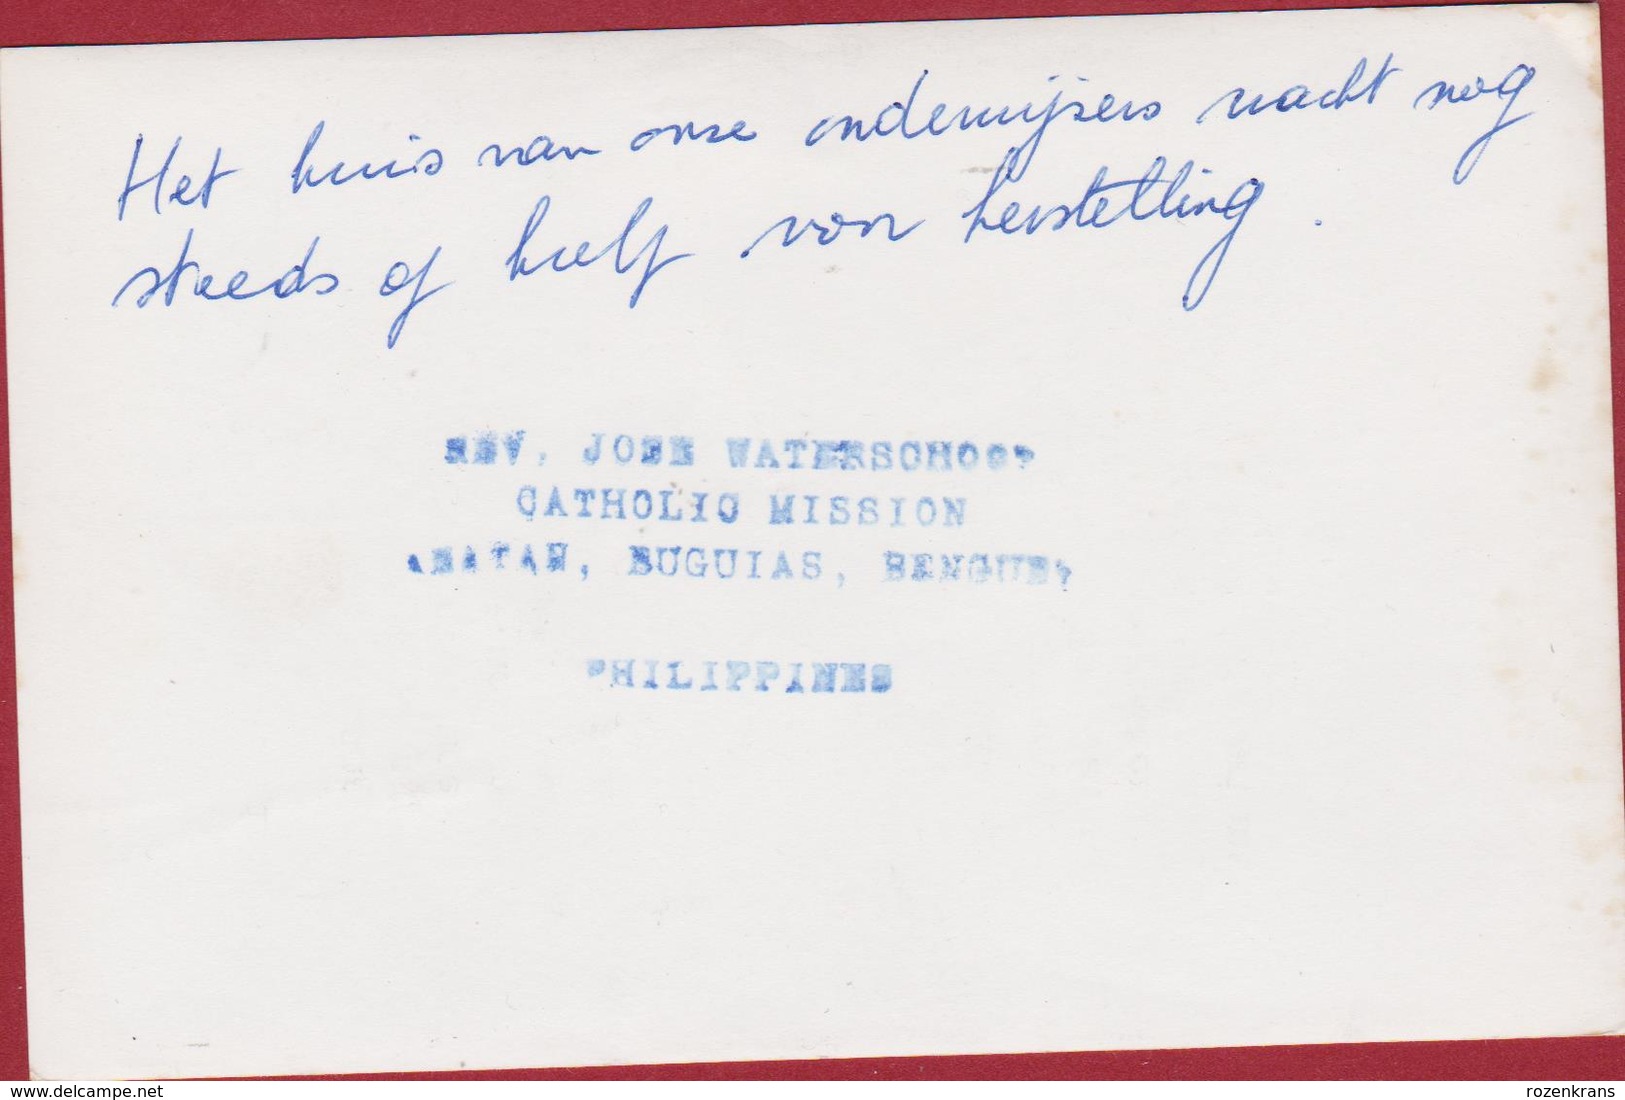 Het huis van onze onderwijzers wacht nog
steeds op hulp voor herstelling.
REV. JOSE WATERSCHOOT
CATHOLIC MISSION
ABATAN, BUGUIAS, BENGUET
PHILIPPINES
delcampe.net
rozenkrans